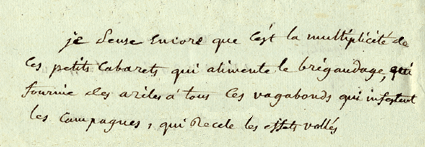 je pense encore que c'est la multiplicité de
ces petits cabarets qui alimente le brigandage, qui
fournie des aziles á tous ces vagabonds qui infestent
les campagnes, qui recele les effets vollés